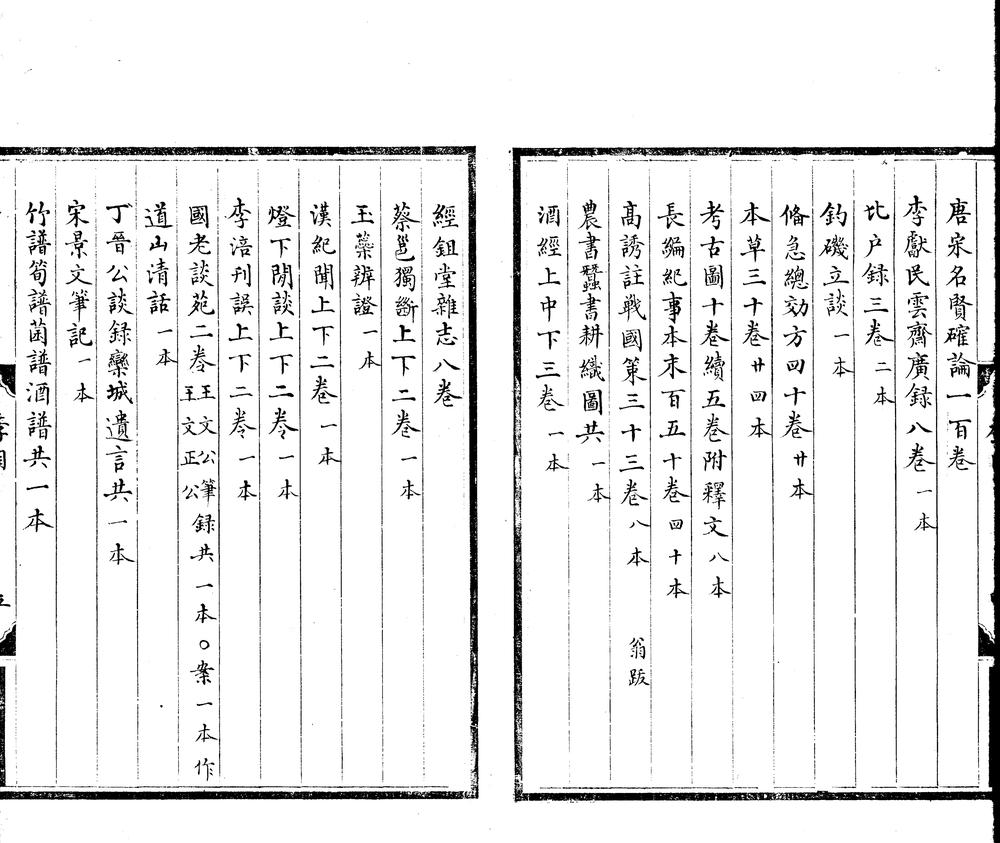 唐宋名賢確論一百卷
李獻民雲齋廣録八卷一本
北户録三卷二本
釣磯立談一本
俻急總効方四十卷廿本
本草三十卷廿四本
考古圖十卷續五卷附釋文八本
長編紀事本末百五十卷四十本
高誘註戰國策三十三卷八本 翁跋
農書蠶書耕織圖共一本
酒經上中下三卷一本
經鉏堂雜志八卷
蔡邕獨斷上下二卷一本
玉蘂辨證一本
漢紀聞上下二卷一本
燈下閒談上下二卷一本
李涪刊誤上下二卷一本
國老談苑二卷王文公筆録共一本○案一本作王文正公
道山清話一本
丁晉公談録欒城遺言共一本
宋景文筆記一本
竹譜筍譜菌譜酒譜共一本